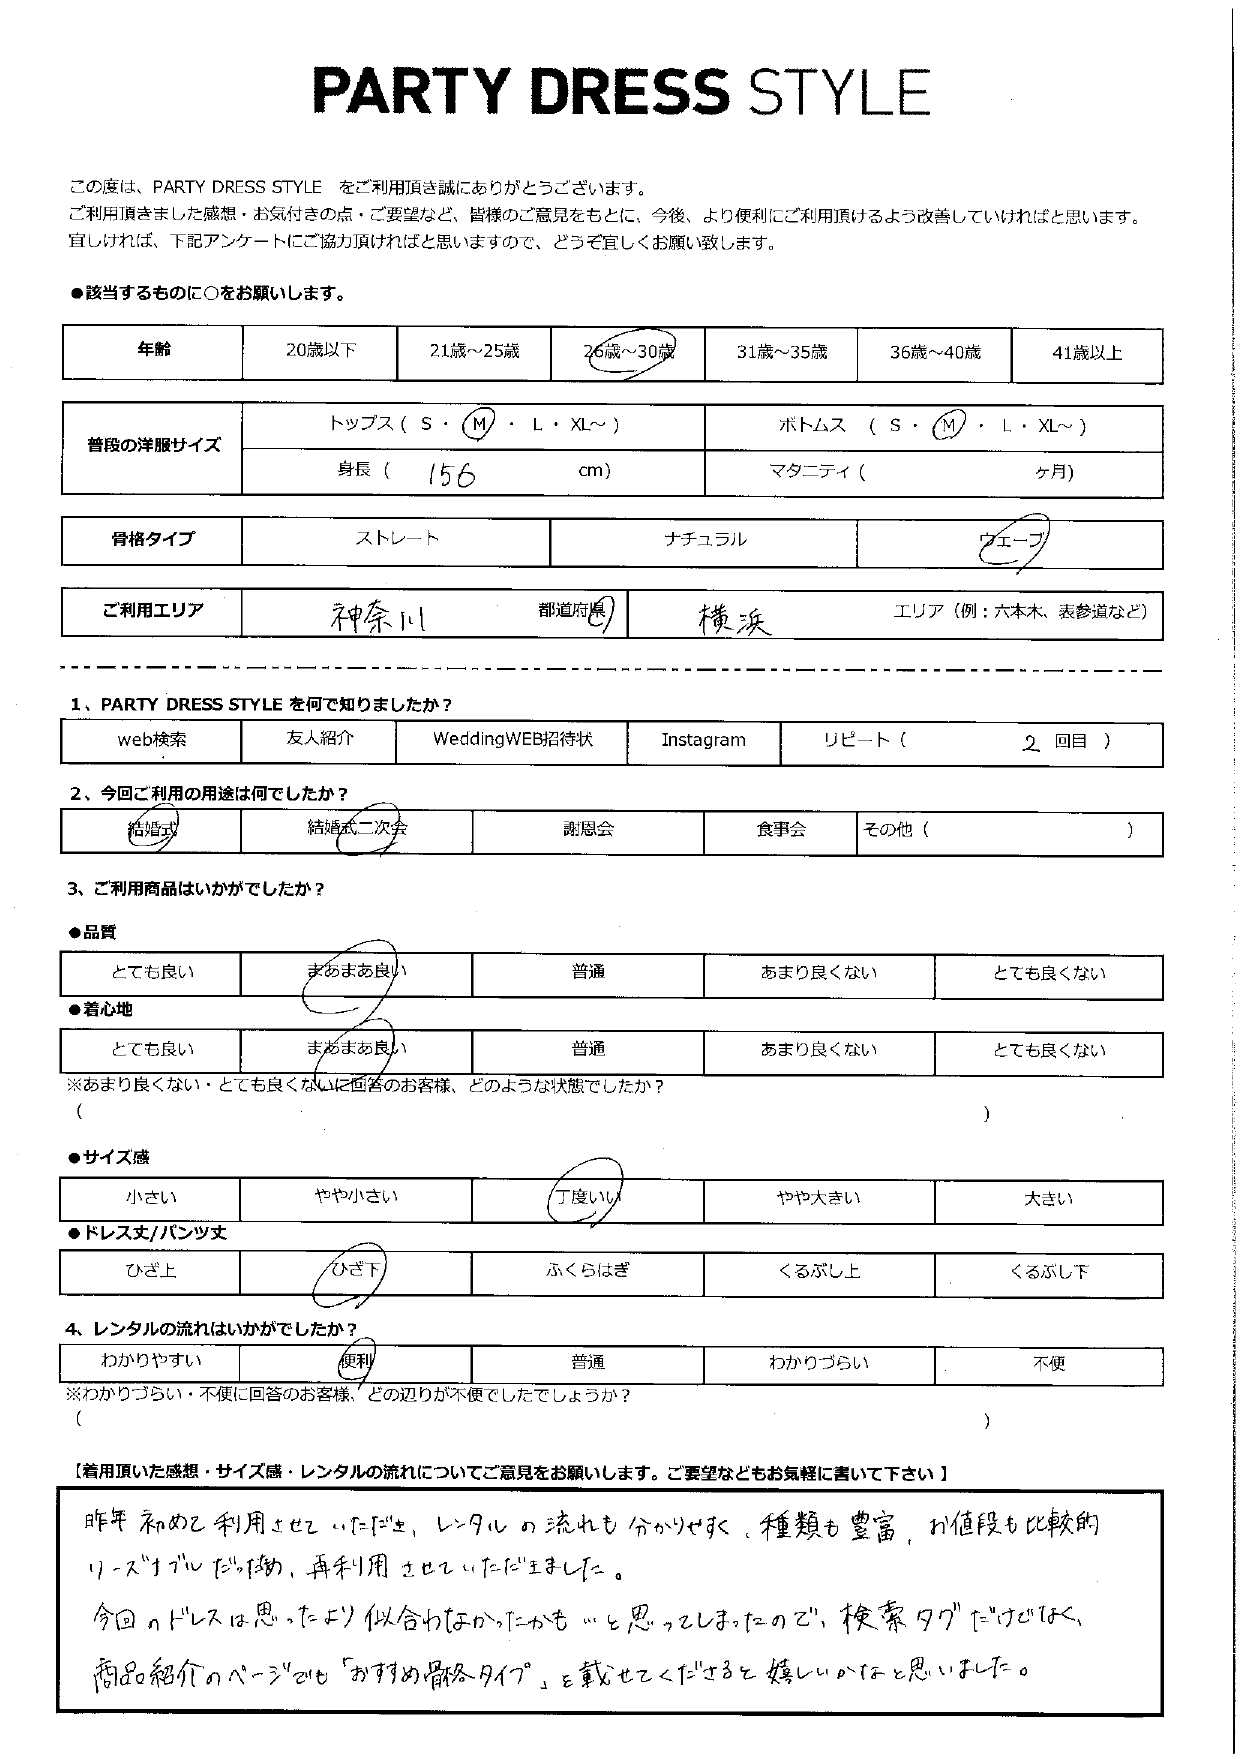 PARTY DRESS STYLE
この度は、PARTY DRESS STYLE をご利用頂き誠にありがとうございます。
ご利用頂きました感想・お気付きの点・ご要望など、皆様のご意見をもとに、今後、より便利にご利用頂けるよう改善していければと思います。
宜しければ、下記アンケートにご協力頂ければと思いますので、どうぞ宜しくお願い致します。
●該当するものに○をお願いします。
年齢 20歳以下 21歳～25歳 26歳～30歳 31歳～35歳 36歳～40歳 41歳以上
普段の洋服サイズ トップス ( S ・ M ・ L ・ XL～ ) ボトムス ( S ・ M ・ L ・ XL～ )
身長 ( 156 cm) マタニティ ( ヶ月)
骨格タイプ ストレート ナチュラル ウェーブ
ご利用エリア 神奈川 都道府県 横浜 エリア（例：六本木、表参道など）
1、PARTY DRESS STYLE を何で知りましたか？
web検索 友人紹介 WeddingWEB招待状 Instagram リピート ( 2 回目 )
2、今回ご利用の用途は何でしたか？
結婚式 結婚式二次会 謝恩会 食事会 その他 ( )
3、ご利用商品はいかがでしたか？
●品質
とても良い まあまあ良い 普通 あまり良くない とても良くない
●着心地
とても良い まあまあ良い 普通 あまり良くない とても良くない
※あまり良くない・とても良くないに回答のお客様、どのような状態でしたか？
( )
●サイズ感
小さい やや小さい 丁度いい やや大きい 大きい
●ドレス丈/パンツ丈
ひざ上 ひざ下 ふくらはぎ くるぶし上 くるぶし下
4、レンタルの流れはいかがでしたか？
わかりやすい 便利 普通 わかりづらい 不便
※わかりづらい・不便に回答のお客様、どの辺りが不便でしたでしょうか？
( )
【着用頂いた感想・サイズ感・レンタルの流れについてご意見をお願いします。ご要望などもお気軽に書いて下さい 】
昨年 初めて利用させていただき、レンタルの流れも分かりやすく、種類も豊富、お値段も比較的
リーズナブルだったため、再利用させていただきました。
今回のドレスは思ったより似合わなかったかも…と思ってしまったので、検索タグだけでなく、
商品紹介のページでも「おすすめ骨格タイプ」を載せてくださると嬉しいかなと思いました。